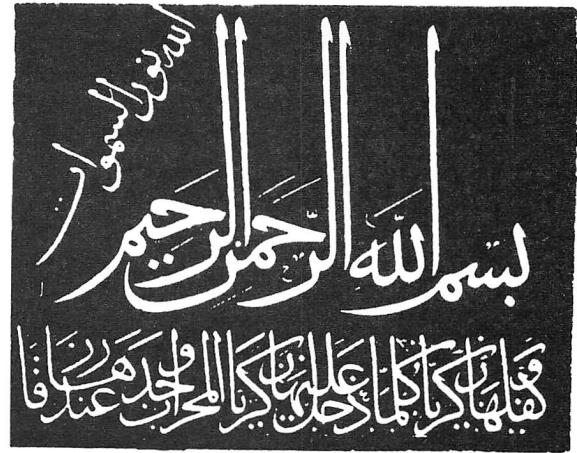 الله نور السموات
بسم الله الرحمن الرحيم
وكفلها زكريا كلما دخل عليها زكريا المحراب وجد عندها رزقا